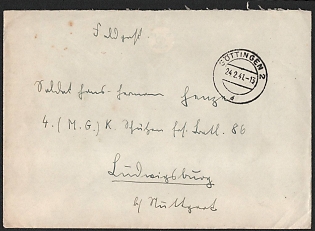 Feldpost
GÖTTINGEN 2
24.2.41.-13
d
Soldat Hans-Hermann
4. (M.G.) K. Schützen Ers. Batl. 86
Ludwigsburg
b/ Stuttgart